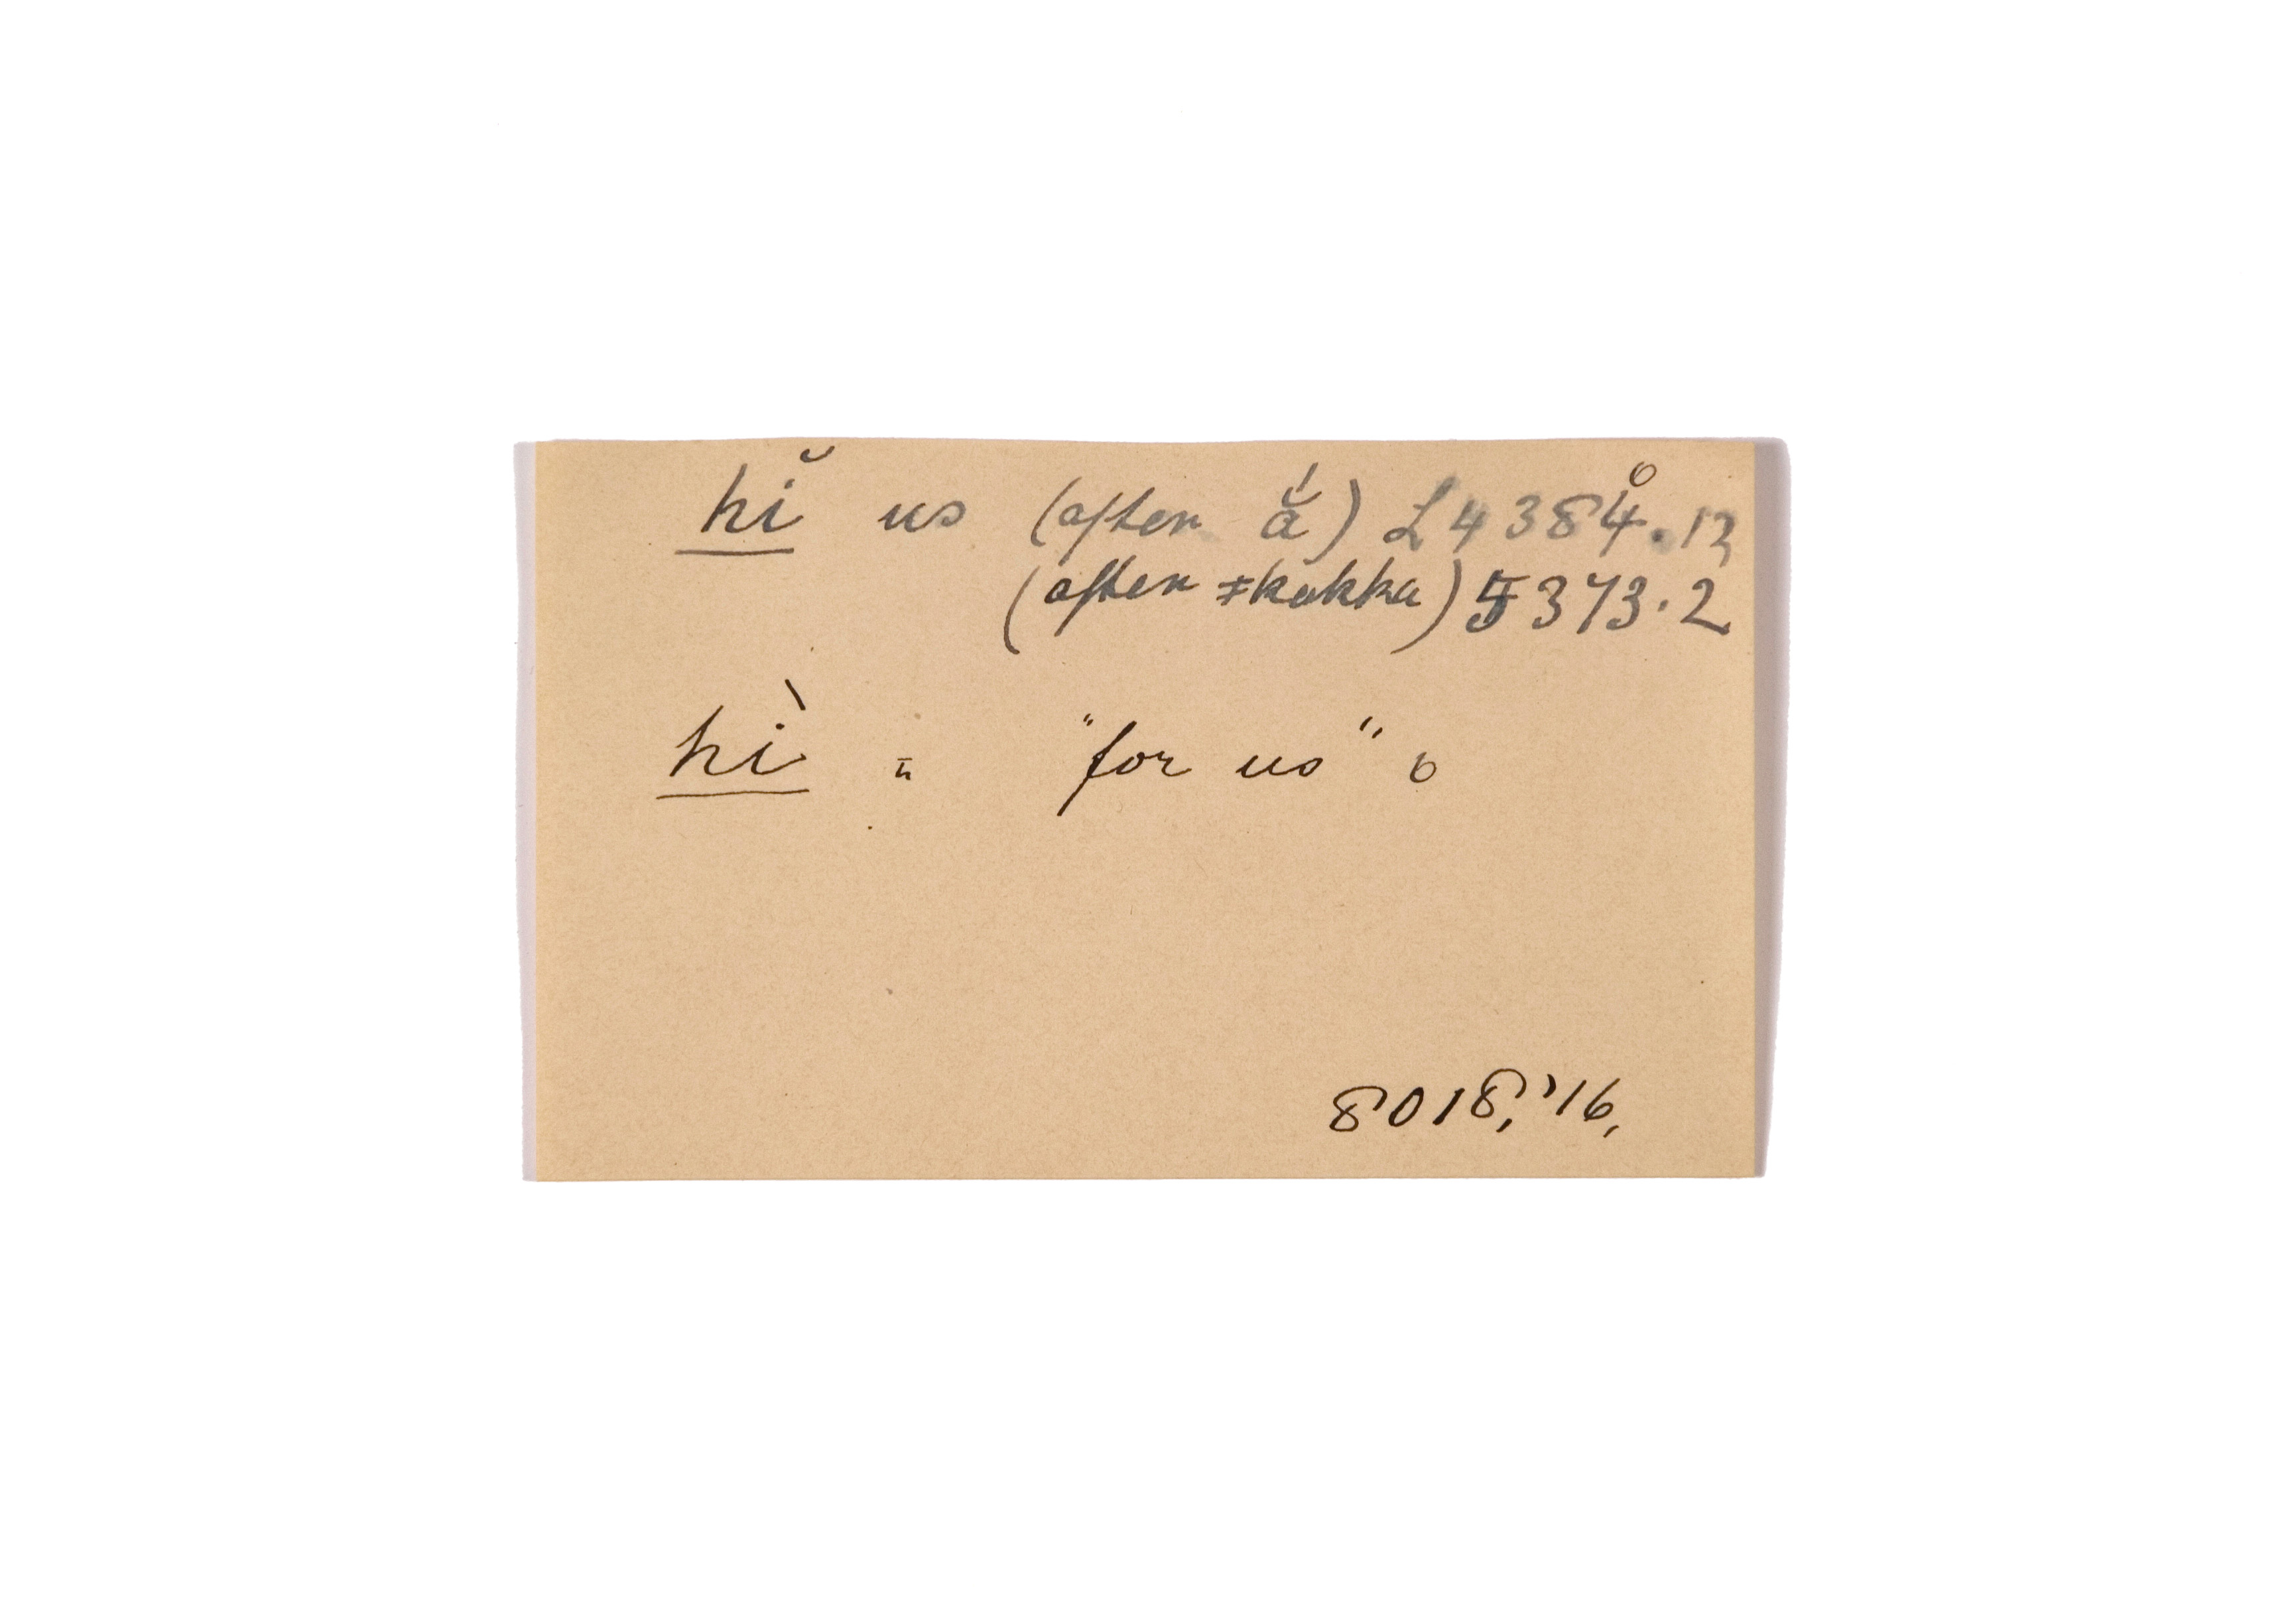 hĭ us (after ắ) L 4384̊.12
(after ǂkakka) 5373.2
hì = "for us" o
8018,'16,